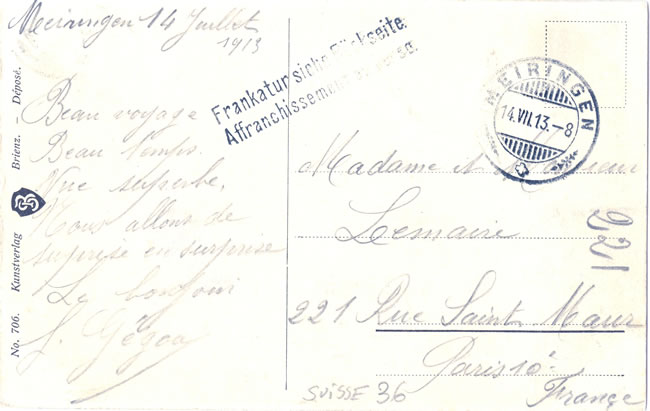 Meiringen 14 Juillet
1913
Beau voyage
Beau temps.
Vue superbe.
Nous allons de
surprise en surprise
Frankatur siehe Rückseite.
Affranchissement au
MEIRINGEN
14.VII.13.-8
Madame
Lemaire
221 Rue Saint Maur
Paris 10e
France
221
SUISSE 36
No. 706. Kunstverlag Brienz. Déposé.